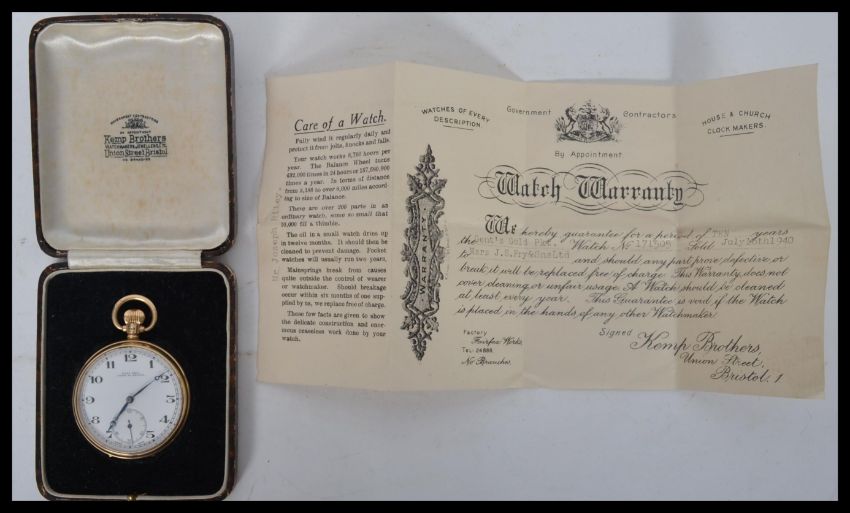 GOVERNMENT CONTRACTORS
BY APPOINTMENT
Kemp Brothers
WATCHMAKERS & JEWELLERS LTD.
Union Street, Bristol
12
1
2
3
4
5
7
8
9
10
11
Care of a Watch.
Fully wind it regularly daily and
protect it from jolts, knocks and falls.
Your watch works 8,760 hours per
year. The Balance Wheel turns
432,000 times in 24 hours or 157,680,000
times a year. In terms of distance
from 3,188 to over 6,000 miles accord-
ing to size of Balance.
There are over 200 parts in an
ordinary watch, some so small that
50,000 fill a thimble.
The oil in a small watch dries up
in twelve months. It should then be
cleaned to prevent damage. Pocket
watches will usually run two years.
Mainsprings break from causes
quite outside the control of wearer
or watchmaker. Should breakage
occur within six months of one sup-
plied by us, we replace free of charge.
These few facts are given to show
the delicate construction and enor-
mous ceaseless work done by your
watch.
Mr Joseph Riley.
WATCHES OF EVERY
DESCRIPTION.
WARRANTY
Government Contractors
By Appointment
HOUSE & CHURCH
CLOCK MAKERS.
Watch Warranty
We hereby guarantee for a period of TEN years
the Gent's Gold Pkt. Watch No 171505 Sold July 26th 1940
to Mers J.S.Fry&Sns Ltd and should any part prove defective or
break it will be replaced free of charge. This Warranty does not
cover cleaning or unfair usage. A Watch should be cleaned
at least every year. This Guarantee is void if the Watch
is placed in the hands of any other Watchmaker.
Factory
Fairfax Works.
Tel: 24888.
No Branches.
Signed Kemp Brothers,
Union Street,
Bristol, 1